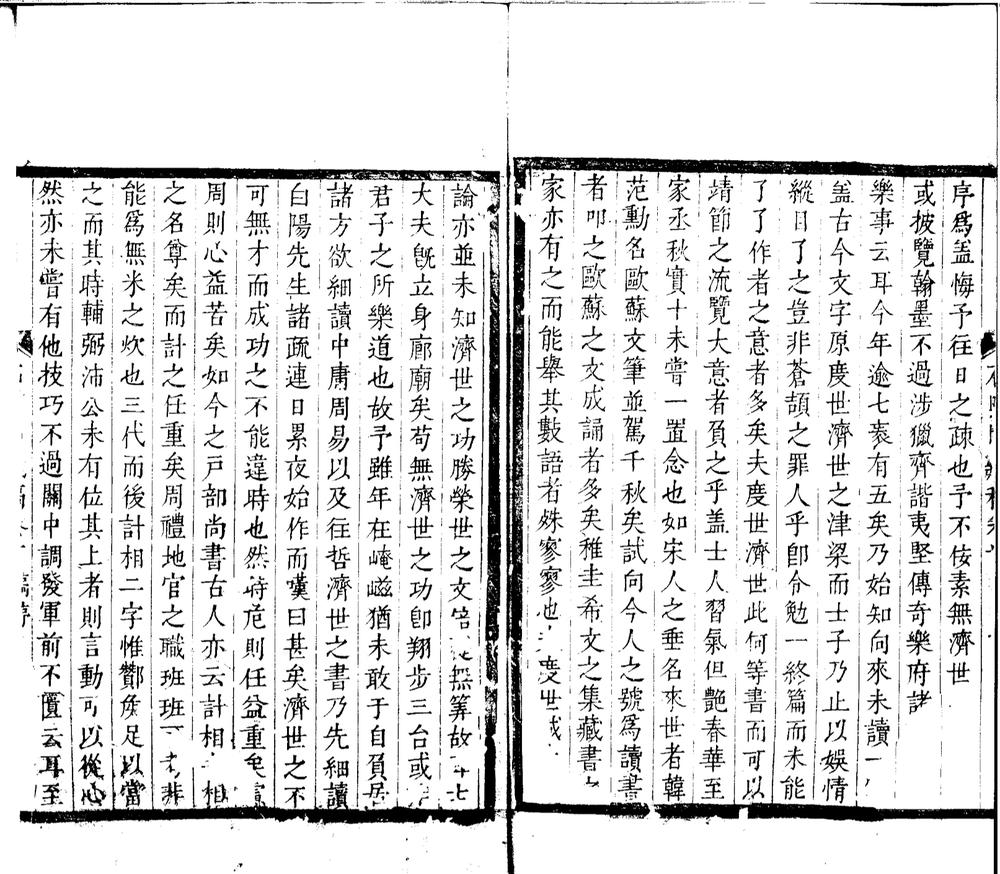 序爲盖悔予往日之疎也予不佞素無濟世
或披覽翰墨不過涉獵齊諧夷堅傳竒樂府諸
樂事云耳今年逾七袠有五矣乃始知向來未讀
盖古今文字原度世濟世之津梁而士子乃止以娛情
縱目了之豈非蒼頡之罪人乎卽分勉一終篇而未能
了了作者之意者多矣夫度世濟世此何等書而可以
靖節之流覽大意者負之乎盖士人習氣但艷春華至
家丞秋實十未嘗一置念也如宋人之垂名來世者韓
范勳名歐蘇文筆並駕千秋矣試向今人之號爲讀書
者叩之歐蘇之文成誦者多矣稚圭希文之集藏書
家亦有之而能舉其數語者殊寥寥也度世
論亦並未知濟世之功勝榮世之文無筭故
大夫旣立身廊廟矣茍無濟世之功卽翔步三台或
君子之所樂道也故予雖年在崦嵫猶未敢于自負居
諸方欲細讀中庸周易以及往哲濟世之書乃先細讀
白陽先生諸疏連日累夜始作而嘆曰甚矣濟世之不
可無才而成功之不能違時也然時危則任益重矣
周則心益苦矣如今之戸部尚書古人亦云計相相
之名尊矣而計之任重矣周禮地官之職班班非
能爲無米之炊也三代而後計相二字惟酇矦足以當
之而其時輔弼沛公未有位其上者則言動可以從心
然亦未嘗有他技巧不過關中調發軍前不匱云耳至